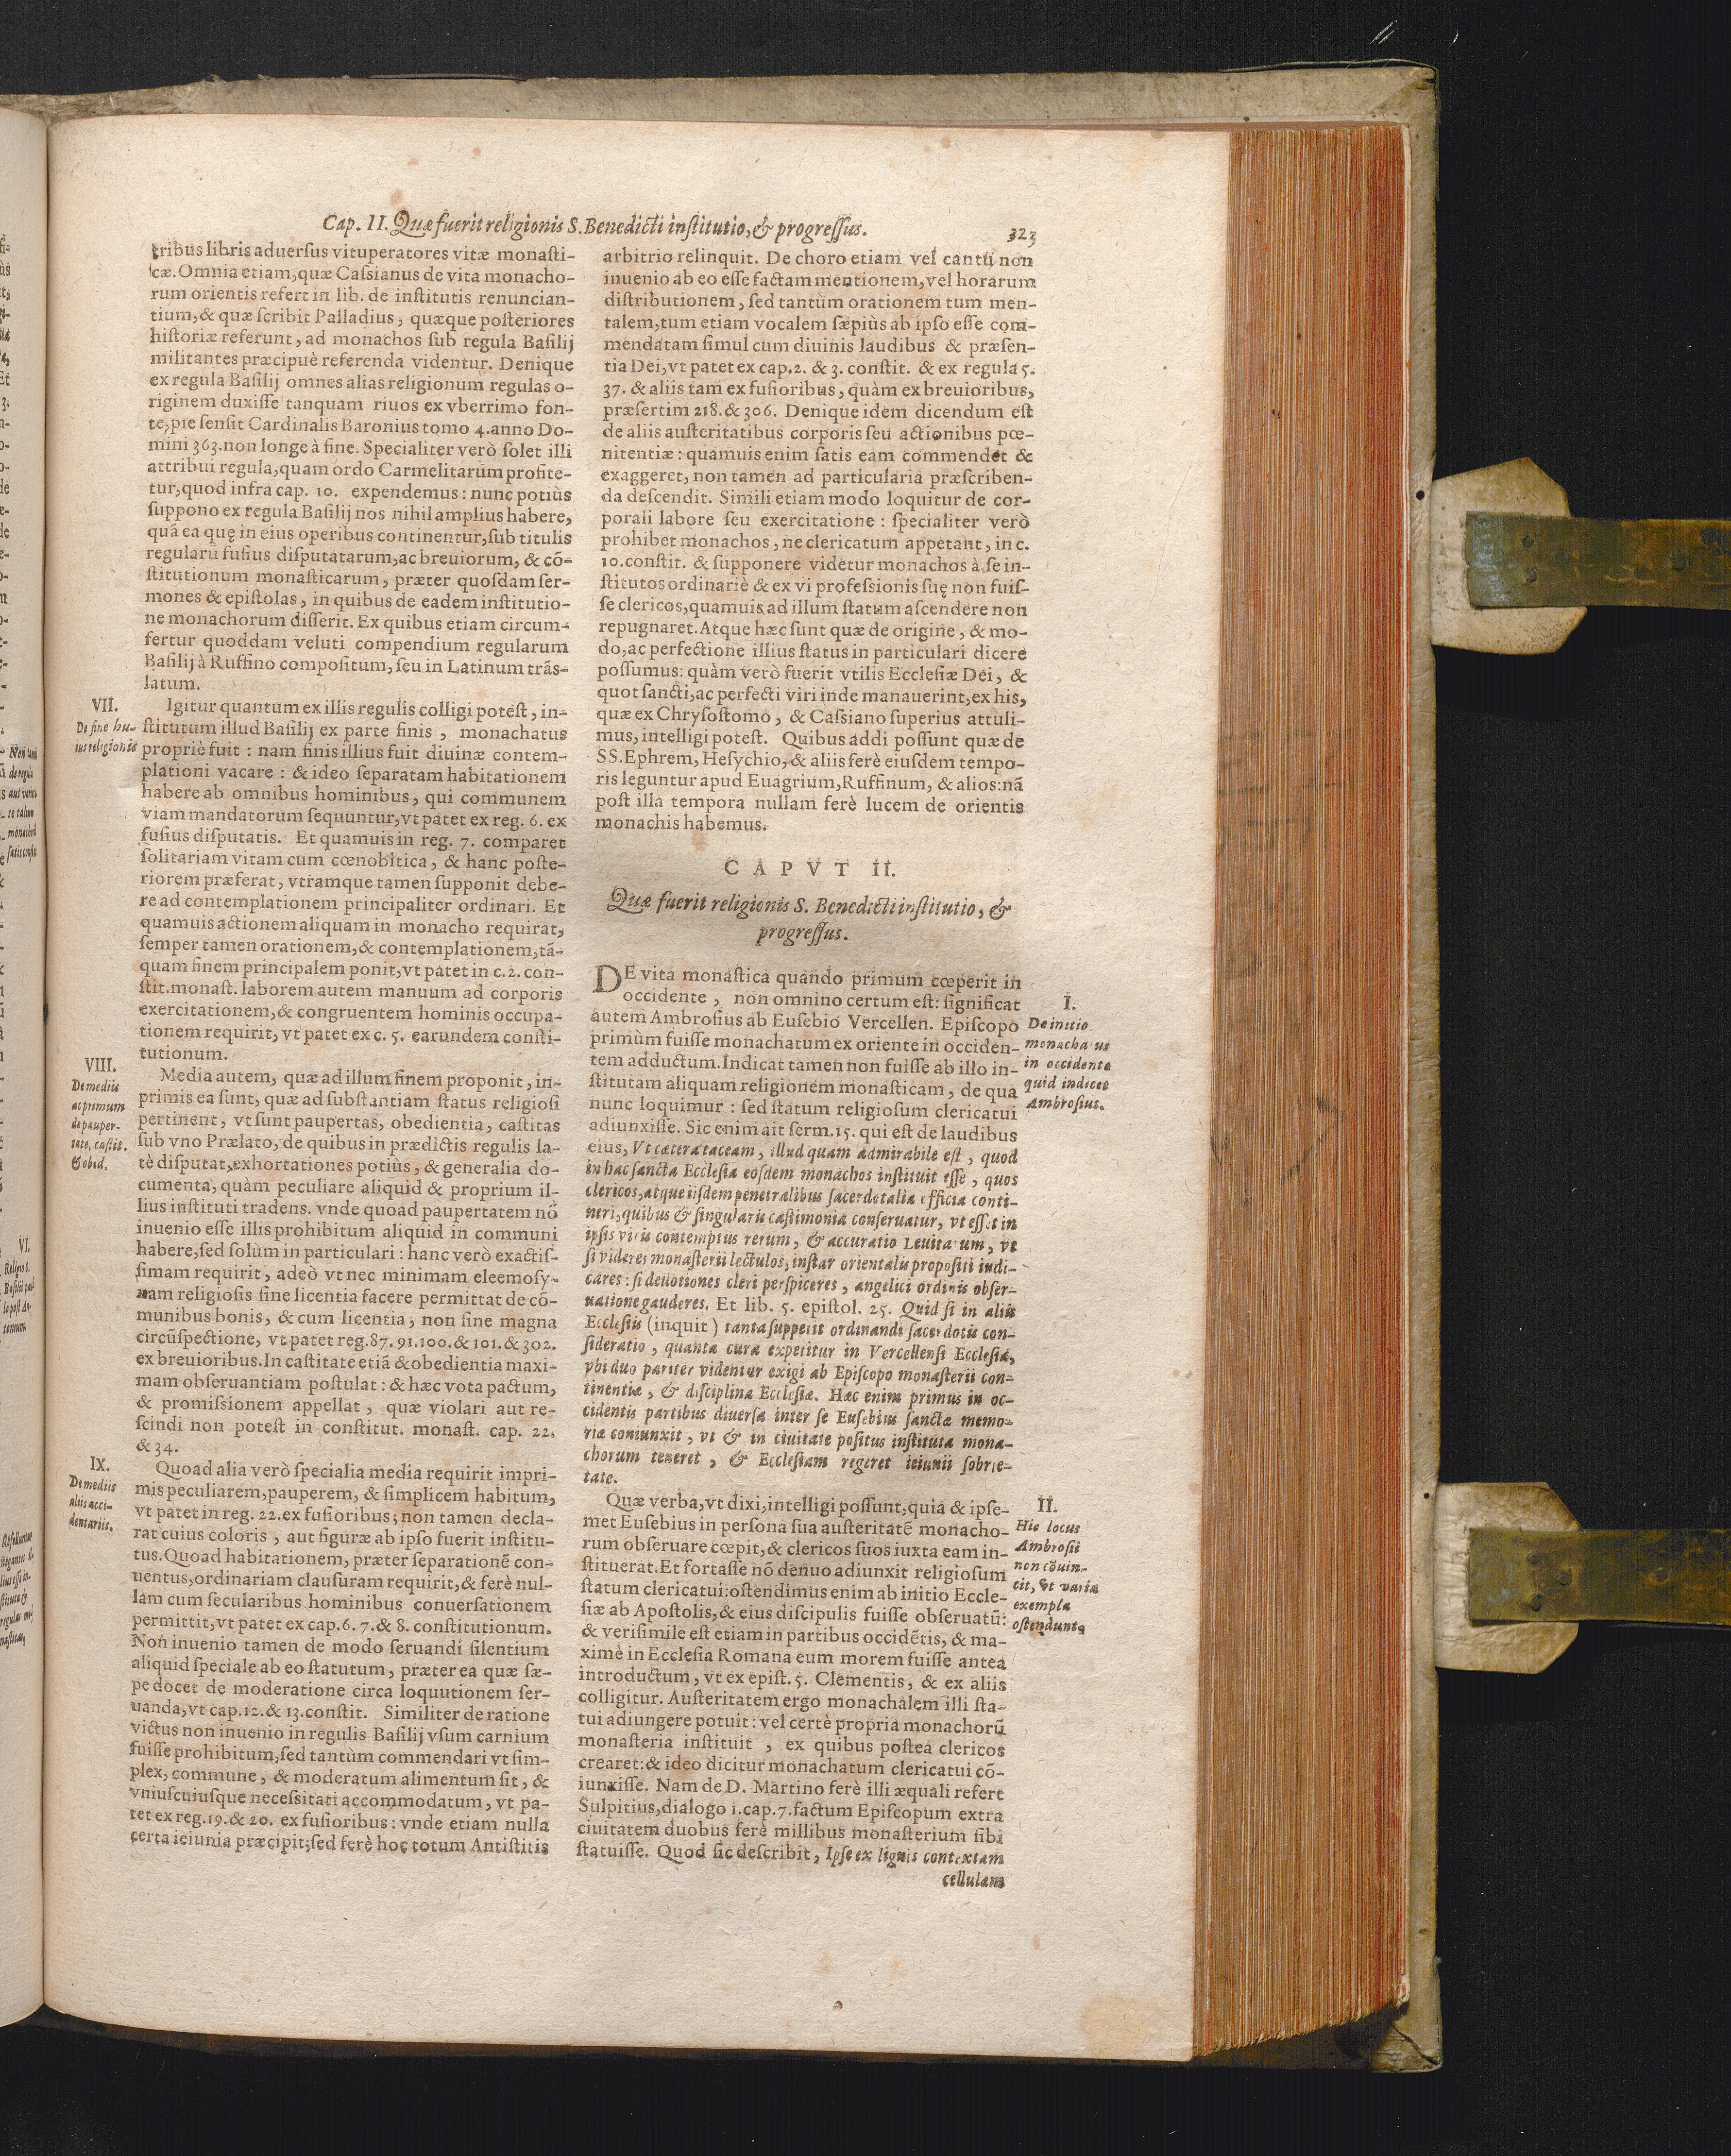 Cap. II. Quæ fuerit religionis S. Benedicti inſtitutio, & progreſſus.
323
tribus libris aduerſus vituperatores vitæ monaſti-
cæ. Omnia etiam, quæ Caſsianus de vita monacho-
rum orientis refert in lib. de inſtitutis renuncian-
tium, & quæ ſcribit Palladius, quæque poſteriores
hiſtoriæ referunt, ad monachos ſub regula Baſilij
militantes præcipuè referenda videntur. Denique
ex regula Baſilij omnes alias religionum regulas o-
riginem duxiſſe tanquam riuos ex vberrimo fon-
te, pie ſenſit Cardinalis Baronius tomo 4. anno Do-
mini 363. non longe à fine. Specialiter verò ſolet illi
attribui regula, quam ordo Carmelitarum profite-
tur, quod infra cap. 10. expendemus: nunc potiùs
ſuppono ex regula Baſilij nos nihil amplius habere,
quã ea quę in eius operibus continentur, ſub titulis
regularũ fuſius diſputatarum, ac breuiorum, & cõ-
ſtitutionum monaſticarum, præter quoſdam ſer-
mones & epiſtolas, in quibus de eadem inſtitutio-
ne monachorum diſſerit. Ex quibus etiam circum-
fertur quoddam veluti compendium regularum
Baſilij à Ruffino compoſitum, ſeu in Latinum trãſ-
latum.
VII.
De fine hu-
ius religionis
Igitur quantum ex illis regulis colligi poteſt, in-
ſtitutum illud Baſilij ex parte finis, monachatus
propriè fuit: nam finis illius fuit diuinæ contem-
plationi vacare: & ideo ſeparatam habitationem
habere ab omnibus hominibus, qui communem
viam mandatorum ſequuntur, vt patet ex reg. 6. ex
fuſius diſputatis. Et quamuis in reg. 7. comparet
ſolitariam vitam cum cœnobitica, & hanc poſte-
riorem præferat, vtramque tamen ſupponit debe-
re ad contemplationem principaliter ordinari. Et
quamuis actionem aliquam in monacho requirat,
ſemper tamen orationem, & contemplationem, tã-
quam finem principalem ponit, vt patet in c. 2. con-
ſtit. monaſt. laborem autem manuum ad corporis
exercitationem, & congruentem hominis occupa-
tionem requirit, vt patet ex c. 5. earundem conſti-
tutionum.
VIII.
De mediis
ac primum
de pauper-
tate, caſtit.
& obed.
Media autem, quæ ad illum finem proponit, in-
primis ea ſunt, quæ ad ſubſtantiam ſtatus religioſi
pertinent, vt ſunt paupertas, obedientia, caſtitas
ſub vno Prælato, de quibus in prædictis regulis la-
tè diſputat, exhortationes potiùs, & generalia do-
cumenta, quàm peculiare aliquid & proprium il-
lius inſtituti tradens. vnde quoad paupertatem nõ
inuenio eſſe illis prohibitum aliquid in communi
habere, ſed ſolùm in particulari: hanc verò exactiſ-
ſimam requirit, adeò vt nec minimam eleemoſy-
nam religioſis ſine licentia facere permittat de cõ-
munibus bonis, & cum licentia, non ſine magna
circũſpectione, vt patet reg. 87. 91. 100. & 101. & 302.
ex breuioribus. In caſtitate etiã & obedientia maxi-
mam obſeruantiam poſtulat: & hæc vota pactum,
& promiſsionem appellat, quæ violari aut re-
ſcindi non poteſt in conſtitut. monaſt. cap. 22.
& 34.
IX.
De mediis
aliis acci-
dentariis.
Quoad alia verò ſpecialia media requirit impri-
mis peculiarem, pauperem, & ſimplicem habitum,
vt patet in reg. 22. ex fuſioribus; non tamen decla-
rat cuius coloris, aut figuræ ab ipſo fuerit inſtitu-
tus. Quoad habitationem, præter ſeparationẽ con-
uentus, ordinariam clauſuram requirit, & ferè nul-
lam cum ſecularibus hominibus conuerſationem
permittit, vt patet ex cap. 6. 7. & 8. conſtitutionum.
Non inuenio tamen de modo ſeruandi ſilentium
aliquid ſpeciale ab eo ſtatutum, præter ea quæ ſæ-
pe docet de moderatione circa loquutionem ſer-
uanda, vt cap. 12. & 13. conſtit. Similiter de ratione
victus non inuenio in regulis Baſilij vſum carnium
fuiſſe prohibitum, ſed tantùm commendari vt ſim-
plex, commune, & moderatum alimentum ſit, &
vniuſcuiuſque neceſsitati accommodatum, vt pa-
tet ex reg. 19. & 20. ex fuſioribus: vnde etiam nulla
certa ieiunia præcipit; ſed ferè hoc totum Antiſtitis
arbitrio relinquit. De choro etiam vel cantu non
inuenio ab eo eſſe factam mentionem, vel horarum
diſtributionem, ſed tantùm orationem tum men-
talem, tum etiam vocalem ſæpiùs ab ipſo eſſe com-
mendatam ſimul cum diuinis laudibus & præſen-
tia Dei, vt patet ex cap. 2. & 3. conſtit. & ex regula 5.
37. & aliis tam ex fuſioribus, quàm ex breuioribus,
præſertim 218. & 306. Denique idem dicendum eſt
de aliis auſteritatibus corporis ſeu actionibus pœ-
nitentiæ: quamuis enim ſatis eam commendet &
exaggeret, non tamen ad particularia præſcriben-
da deſcendit. Simili etiam modo loquitur de cor-
porali labore ſeu exercitatione: ſpecialiter verò
prohibet monachos, ne clericatum appetant, in c.
10. conſtit. & ſupponere videtur monachos à ſe in-
ſtitutos ordinariè & ex vi profeſsionis ſuę non fuiſ-
ſe clericos, quamuis ad illum ſtatum aſcendere non
repugnaret. Atque hæc ſunt quæ de origine, & mo-
do, ac perfectione illius ſtatus in particulari dicere
poſſumus: quàm verò fuerit vtilis Eccleſiæ Dei, &
quot ſancti, ac perfecti viri inde manauerint, ex his,
quæ ex Chryſoſtomo, & Caſsiano ſuperius attuli-
mus, intelligi poteſt. Quibus addi poſſunt quæ de
SS. Ephrem, Heſychio, & aliis ferè eiuſdem tempo-
ris leguntur apud Euagrium, Ruffinum, & alios: nã
poſt illa tempora nullam ferè lucem de orientis
monachis habemus.
CAPVT II.
Quæ fuerit religionis S. Benedicti inſtitutio, &
progreſſus.
DE vita monaſtica quando primum cœperit in
occidente, non omnino certum eſt: ſignificat
autem Ambroſius ab Euſebio Vercellen. Epiſcopo
primùm fuiſſe monachatum ex oriente in occiden-
tem adductum. Indicat tamen non fuiſſe ab illo in-
ſtitutam aliquam religionem monaſticam, de qua
nunc loquimur: ſed ſtatum religioſum clericatui
adiunxiſſe. Sic enim ait ſerm. 15. qui eſt de laudibus
eius, Vt cætera taceam, illud quam admirabile eſt, quod
in hac ſancta Eccleſia eoſdem monachos inſtituit eſſe, quos
clericos, atque iiſdem penetralibus ſacerdotalia officia conti-
neri, quibus & ſingularis caſtimonia conſeruatur, vt eſſet in
ipſis viris contemptus rerum, & accuratio Leuitarum, vt
ſi videres monaſterii lectulos, inſtar orientalis propoſiti iudi-
cares: ſi deuotiones cleri perſpiceres, angelici ordinis obſer-
uatione gauderes. Et lib. 5. epiſtol. 25. Quid ſi in aliis
Eccleſiis (inquit) tanta ſuppetit ordinandi ſacerdotis con-
ſideratio, quanta cura expetitur in Vercellenſi Eccleſia,
vbi duo pariter videntur exigi ab Epiſcopo monaſterii con-
tinentia, & diſciplina Eccleſiæ. Hæc enim primus in oc-
cidentis partibus diuerſa inter ſe Euſebius ſanctæ memo-
riæ coniunxit, vt & in ciuitate poſitus inſtituta mona-
chorum teneret, & Eccleſiam regeret ieiunii ſobrie-
tate.
I.
De initio
monachatus
in occidente
quid indicet
Ambroſius.
Quæ verba, vt dixi, intelligi poſſunt, quia & ipſe-
met Euſebius in perſona ſua auſteritatẽ monacho-
rum obſeruare cœpit, & clericos ſuos iuxta eam in-
ſtituerat. Et fortaſſe nõ denuo adiunxit religioſum
ſtatum clericatui: oſtendimus enim ab initio Eccle-
ſiæ ab Apoſtolis, & eius diſcipulis fuiſſe obſeruatũ:
& veriſimile eſt etiam in partibus occidẽtis, & ma-
ximè in Eccleſia Romana eum morem fuiſſe antea
introductum, vt ex epiſt. 5. Clementis, & ex aliis
colligitur. Auſteritatem ergo monachalem illi ſta-
tui adiungere potuit: vel certè propria monachorũ
monaſteria inſtituit, ex quibus poſtea clericos
crearet: & ideo dicitur monachatum clericatui cõ-
iunxiſſe. Nam de D. Martino ferè illi æquali refert
Sulpitius, dialogo 1. cap. 7. factum Epiſcopum extra
ciuitatem duobus ferè millibus monaſterium ſibi
ſtatuiſſe. Quod ſic deſcribit, Ipſe ex lignis contextam
cellulam
II.
Hic locus
Ambroſii
non cõuin-
cit, vt varia
exempla
oſtendunt.